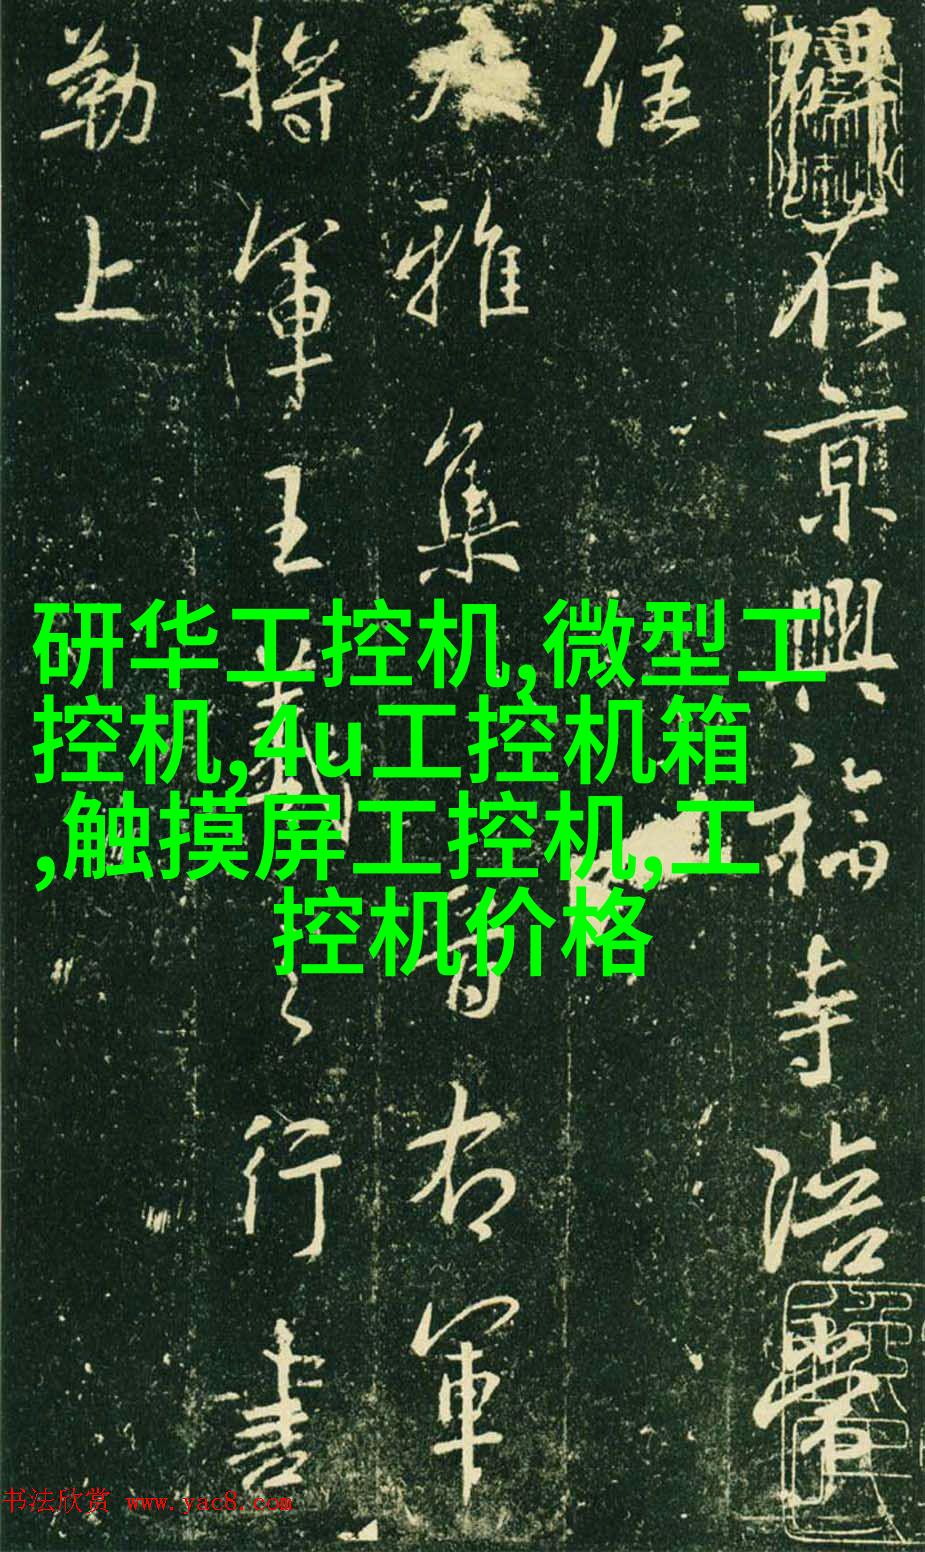 碑在京興福寺陪常
住
大雅集晉右軍
將軍王羲之行書
勒上
研华工控机,微型工
控机,4u工控机箱
,触摸屏工控机,工
控机价格
书法欣赏 www.yac8.com